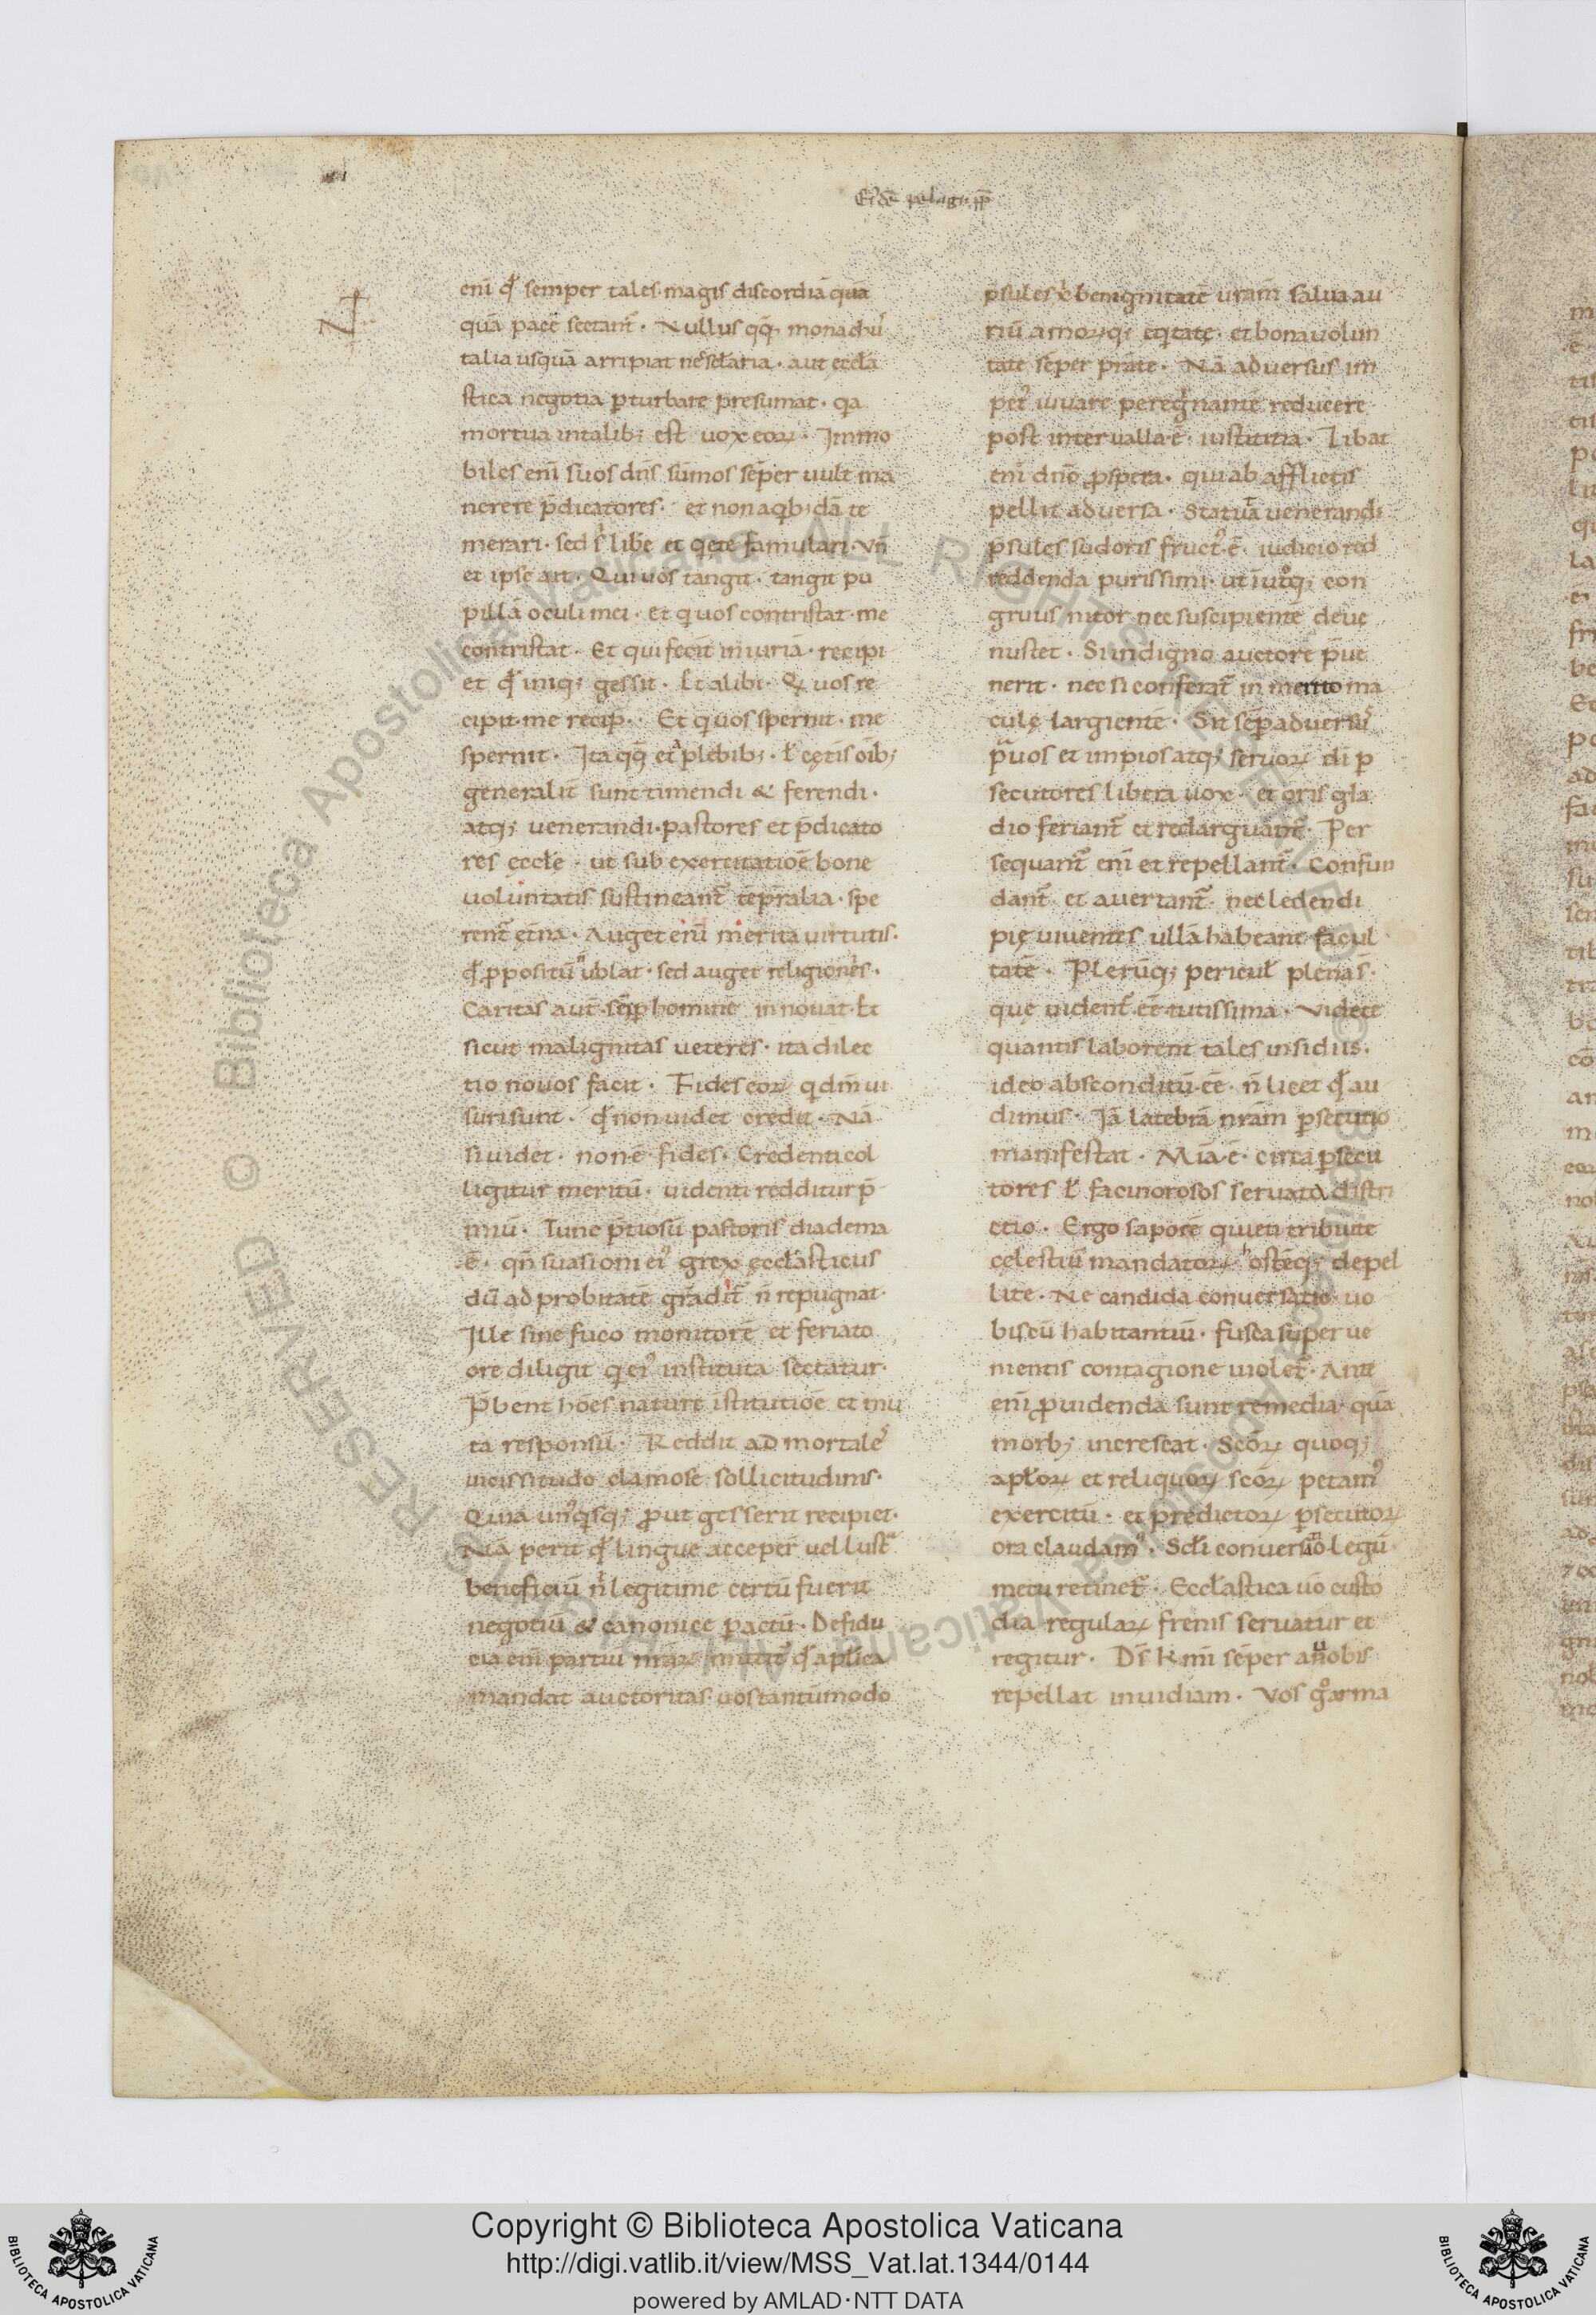 Eiusdē pelagii pp̄
enī qđ semper tales magis discordiā quā
quā pacē sectant̄. Nullus qq̨ monachus
talia usquā arripiat nec̄ saria. aut ęccła
stica negotia p̱turbare presumat. qa
mortua in talib; est uox eoꝝ. Immo
biles enī suos dn̄s sūmos sēper uult ma
nerere p̄dicatores. et non aqb;dā te
merari. sed s libē et qęte famulari. Vn̄
et ipse ait. Qui uos tangit. tangit pu
pillā oculi mei. et quos contristat. me
contristat. Et qui fecit iniuriā. recipi
et qđ iniq; gessit. Et alibi. Qꝫ uos re
cipit. me recip̄. Et quos spernit. me
spernit. Ita qq̨ et a plebib;. ł cęt̄is oīb;
generalit̄ sunt timendi & ferendi.
atq; uenerandi. pastores et p̄dicato
res ęccłę. ut sub exercitatiōe bone
uoluntatis sustineant̄ tēpralia. spe
rent̄ ęt̄na. Auget enī merita uirtutis.
qđ p̱positū n̄ ublat. sed auget religiones.
Caritas aut̄ sēp̱ hominē innouat. Et
sicut malignitas ueteres. ita dilec
tio nouos facit. Fides eoꝝ qdm̄ ui
suri sunt. qđ non uidet credit. Nā
si uidet. non ē fides. Credenti col
ligitur meritū. uidenti redditur p̄
miū. Tunc p̄tiosū pastoris diadema
ē. qn̄ suasioni eiꝰ grex ęccłasticus
dū ad probitatē gradit̄ n̄ repugnat.
Ille sine fuco monitorē et feriato
ore diligit q eiꝰ instituta sectatur.
P̄bent hōēs naturę īstitutiōē et mu
ta responsū. Reddit ad mortaleꝰ
uicissitudo clamose sollicitudinis.
Quia unꝰqsq; ꝓut gesserit recipiet.
Nā perit qđ linguę acceper̄ uel lust
beneficiū n̄ legitime certū fuerit
negotiū & canonicę p̱actū. De fidu
cia enī partiū nrāꝝ mittit̄ qđ ap̄lica
mandat auctoritas uos tantūmodo
p̄sules benignitatē uram salua au
riū amoꝝq; ęqtate. et bona uolun
tate sēper p̄rate. Nā aduersus im
petꝰ iuuare peregrinante reducere
post interualla ē. iustitia. Libat
enī dn̄o ꝓspera. qui ab afflictis
pellit aduersa. Statura uenerandi
p̄sules sudoris fructꝰ ē. iudicio red
reddenda purissimi. ut iutoq; con
gruus nitor nec suscipientē deue
nustet. Si indigno auctore p̄ue
nerit. nec si conferat̄ in merito ma
culę largientē. Sit sēp̱ aduersū
p̄uos et impios atq; seruoꝝ dī p̱
secutores libera uox. et oris gla
dio feriant̄ et redarguant̄. Per
sequant̄ enī et repellant̄. Confun
dant̄ et auertant̄. nec ledendi
pię uiuentes ullā habeant facul
tatē. Plerūq; pericuł plena s̄.
quę uident̄ ēē tutissima. Videte
quantis laborent tales insidiis.
ideo absconditū ēē. n̄ licet qđ au
dimus. Iā latebrā nrām p̱secutio
manifestat. Mīa ē. circa p̱secu
tores ł facinorosos seruata distri
ctio. Ergo saporē quieti tribuite
cęlestiū mandatoꝝ hostēq; depel
lite. Ne candida conuersatio uo
biscū habitantiū. fusca superue
nientis contagione uiolet̄. Ante
enī ꝓuidenda sunt remedia quā
morb; increscat. Scōꝝ quoq;
apłoꝝ et reliquoꝝ scōꝝ petamꝰ
exercitū. et predictoꝝ p̱secutoꝝ
ora claudamꝰ. Scłi conuersatio legū
metu retinet̄. Ecclastica uō custo
dia regulaꝝ frenis seruatur et
regitur. Ds̄ k̄mī sēper a uobis
repellat inuidiam. Vos g̊ arma
Copyright © Biblioteca Apostolica Vaticana
http://digi.vatlib.it/view/MSS_Vat.lat.1344/0144
powered by AMLAD·NTT DATA
BIBLIOTECA APOSTOLICA VATICANA
BIBLIOTECA APOSTOLICA VATICANA